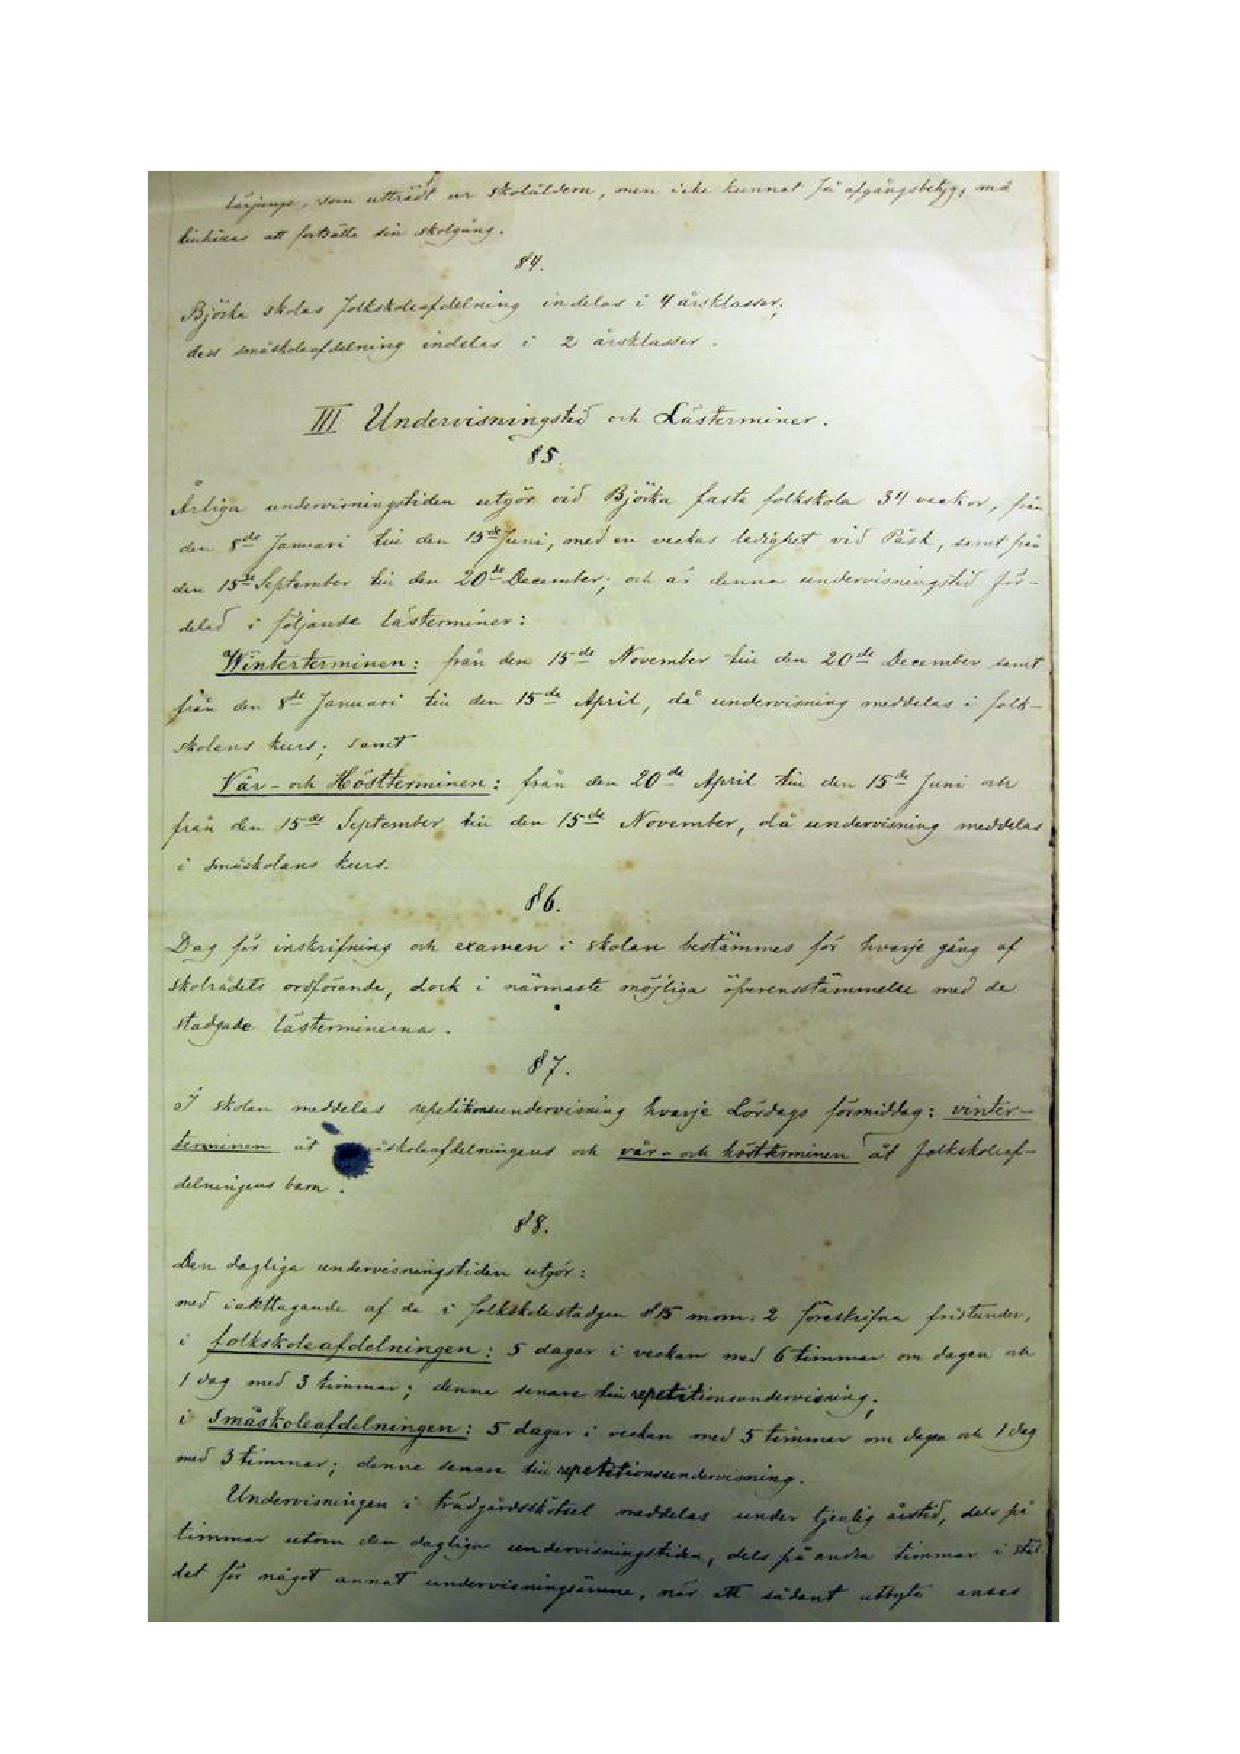 lärjunge, som utträdt ur skolåldern, men icke kunnat få afgångsbetyg, må
tillåtas att fortsätta sin skolgång.
§4.
Björka skolas folkskoleafdelning indelas i 4 årsklasser;
dess småskoleafdelning indelas i 2 årsklasser.
III Undervisningstid och Lästerminer.
§5.
Årliga undervisningstiden utgör vid Björka fasta folkskola 34 veckor, från
den 8de Januari till den 15de Juni, med en veckas ledighet vid Påsk, samt från
den 15de September till den 20de December; och är denna undervisningstid för-
delad i följande lästerminer:
Winterterminen: från den 15de November till den 20de December samt
från den 8de Januari till den 15de April, då undervisning meddelas i folk-
skolans kurs; samt
Vår- och Höstterminen: från den 20de April till den 15de Juni och
från den 15de September till den 15de November, då undervisning meddelas
i småskolans kurs.
§6.
Dag för inskrifning och examen i skolan bestämmes för hvarje gång af
skolrådets ordförande, dock i närmaste möjliga öfverensstämmelse med de
stadgade lästerminerna.
§7.
I skolan meddelas repetitionsundervisning hvarje Lördags förmiddag: vinter-
terminen åt åskoleafdelningens och vår- och höstterminen åt folkskoleaf-
delningens barn.
§8.
Den dagliga undervisningstiden utgör:
med iakttagande af de i folkskolestadgan §15 mom. 2 föreskrifna fristunder,
i folkskoleafdelningen: 5 dagar i veckan med 6 timmar om dagen och
1 dag med 3 timmar; denne senare till repetitionsundervisning;
i Småskoleafdelningen: 5 dagar i veckan med 5 timmar om dagen och 1 dag
med 3 timmar; denne senare till repetitionsundervisning.
Undervisningen i trädgårdsskötsel meddelas under tjenlig årstid, dels på
timmar utom den dagliga undervisningstiden, dels på andra timmar i stäl-
let för något annat undervisningsämne, när ett sådant utbyte anses